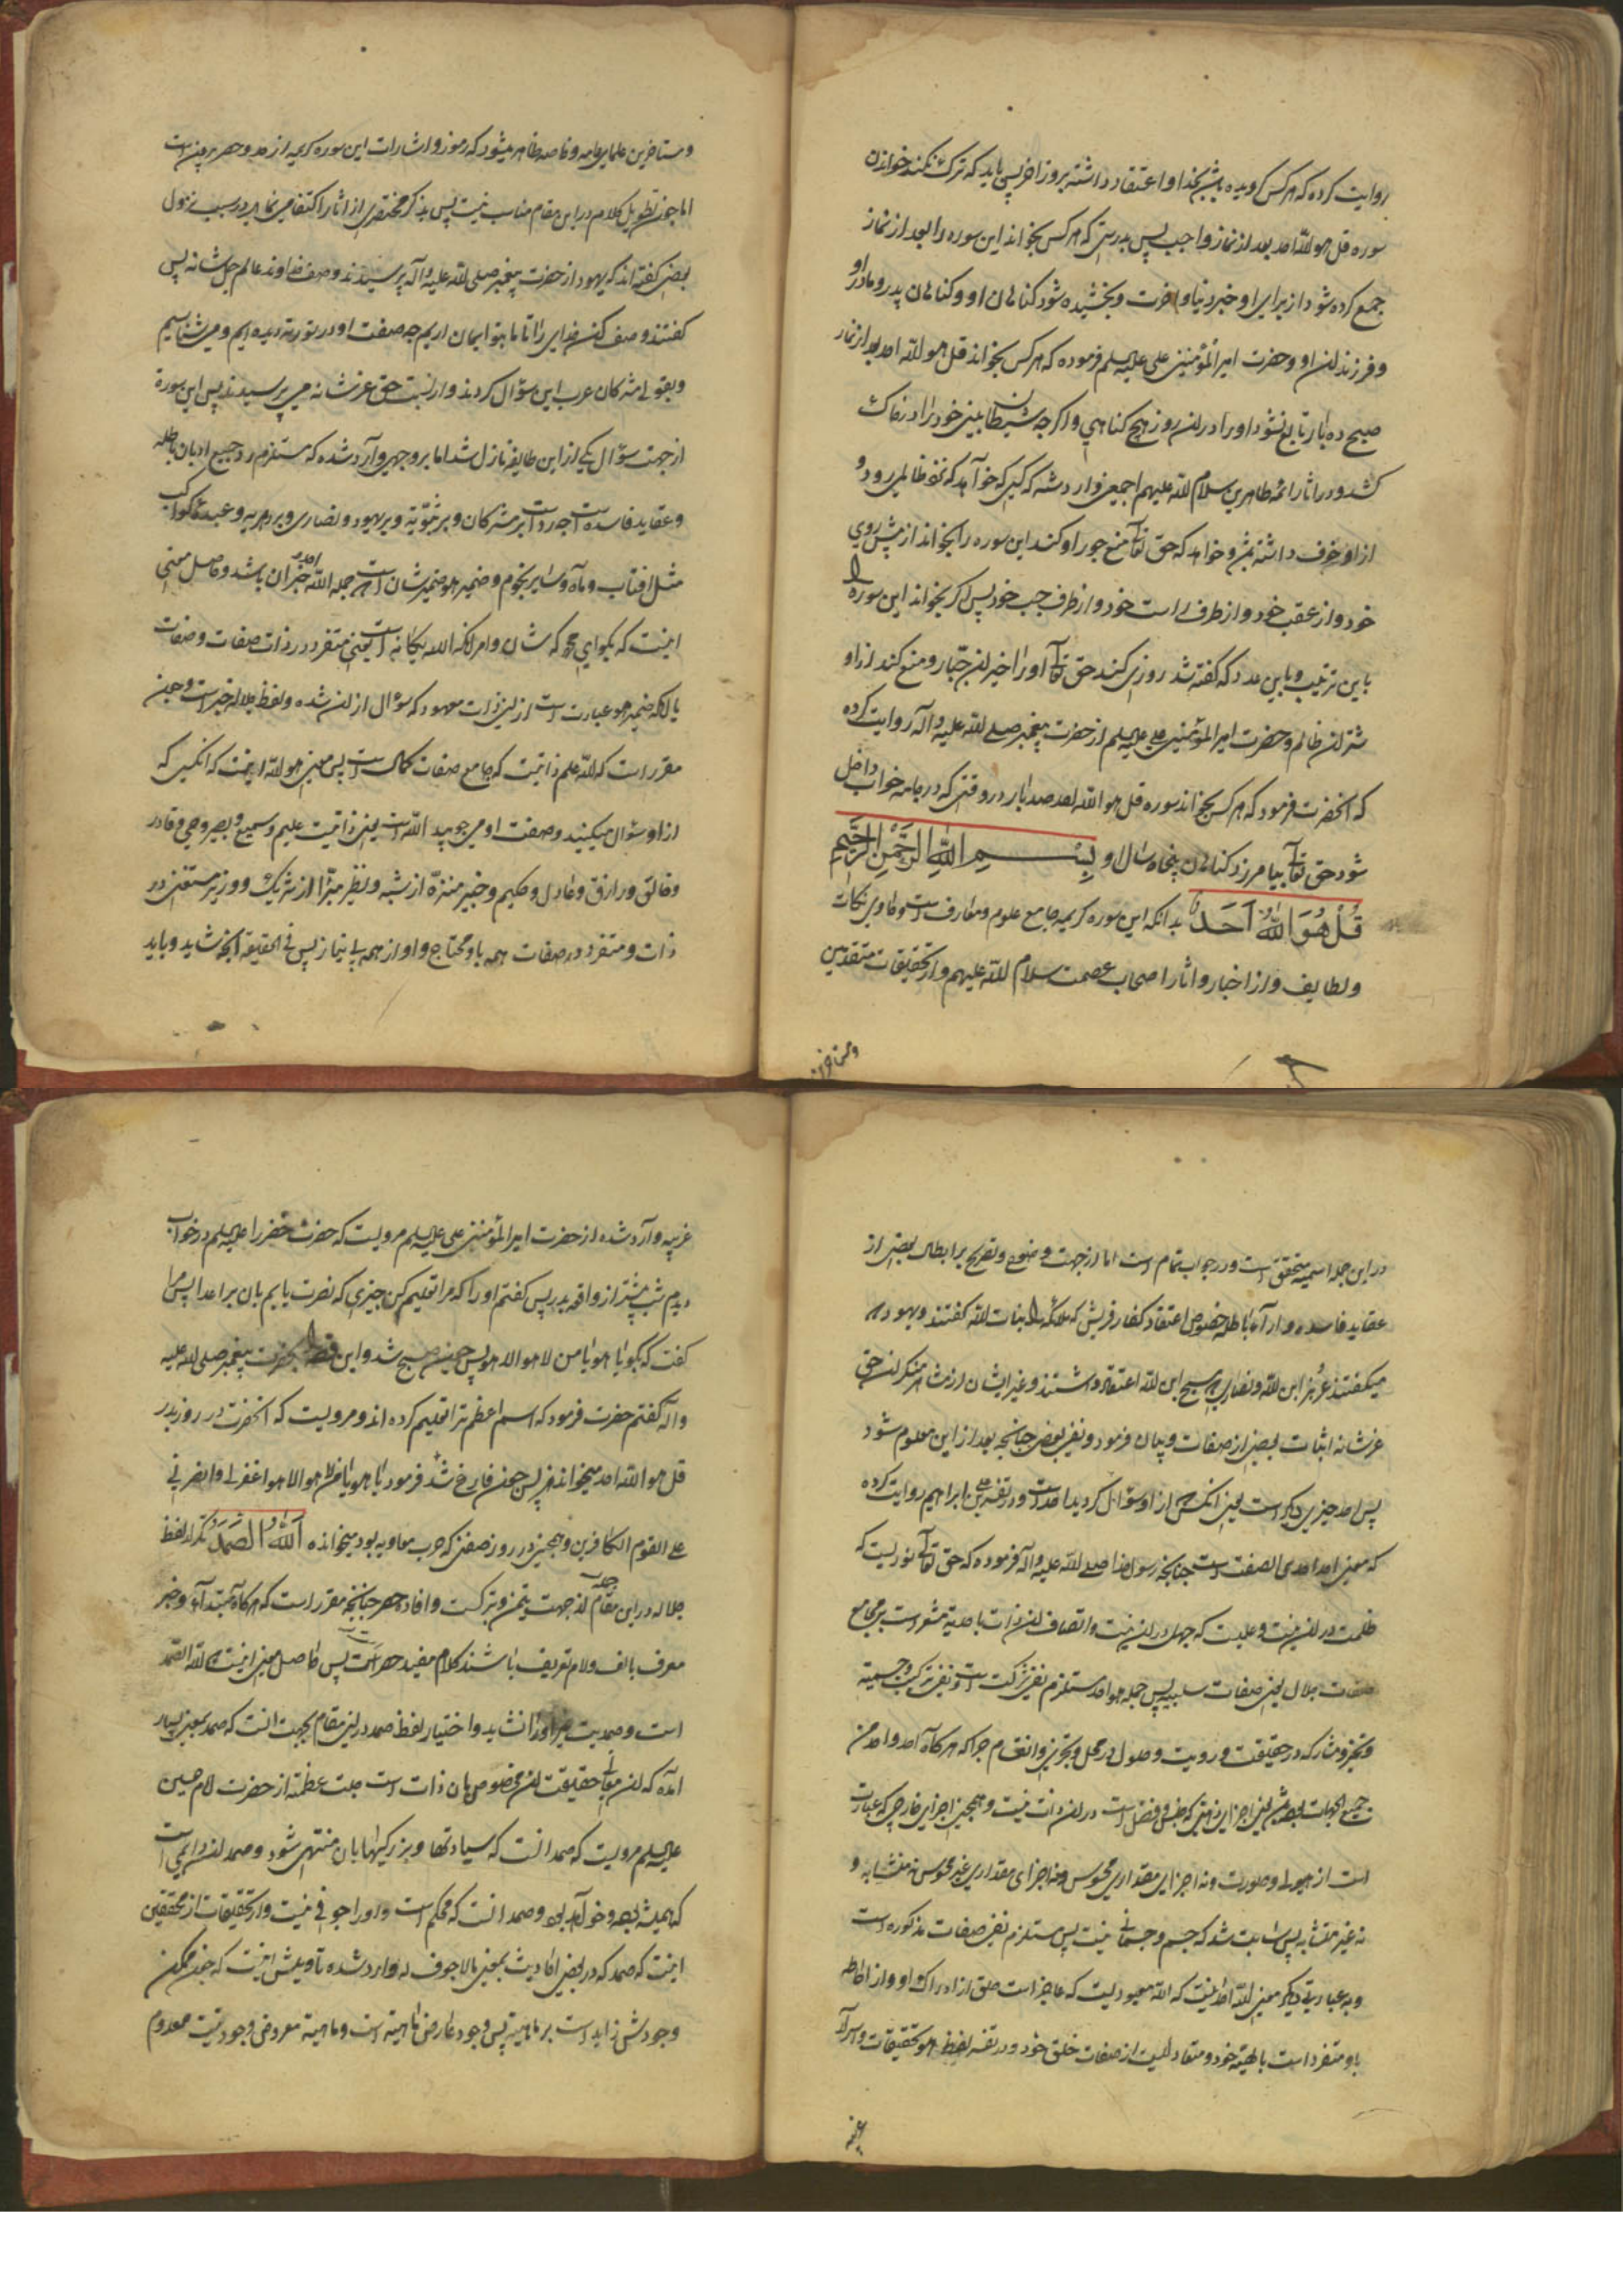 روایت کرده که هر کس کرویده باشد بخدا و اعتقاد داشته بروز اخر پس باید که ترک نکند خواندن
سوره قل هو الله احد بعد از نماز واجب پس بدرستی که هر کس بخواند این سوره را بعد از نماز
جمع کرده شود از برای او خیر دنیا و اخرت و بخشیده شود کناهان او و کناهان پدر و مادر او
و فرزندان او و حضرت امیر المؤمنین علی علیه السلم فرموده که هر کس بخواند قل هو الله احد بعد از نماز
صبح ده بار تابع نشود او را در ان روز هیچ کناهی و اکر چه شیطان بینی خود را در خاک
کشد و در اثار ائمه طاهرین سلام الله علیهم اجمعین وارد شده که کسی که خواهد که نزد ظالمی رود و
از او خوف داشته باشد و خواهد که حق تعالی منع جور او کند این سوره را بخواند از پیش روی
خود و از عقب خود و از طرف راست خود و از طرف چپ خود پس اکر بخواند این سوره را
باین ترتیب و باین عدد که کفته شد روزی کند حق تعالی او را خیر ان جبار و منع کند از او
شر ان ظالم و حضرت امیر المؤمنین علی علیه السلم از حضرت پیغمبر صلی الله علیه و اله روایت کرده
که انحضرت فرمود که هر کس بخواند سوره قل هو الله احد صد بار در وقتی که در جامه خواب داخل
شود حق تعالی بیامرزد کناهان پنجاه سال او بِسْمِ اللهِ الرَّحْمنِ الرَّحِيمِ
قُلْ هُوَ اللهُ اَحَدٌ بدانکه این سوره کریمه جامع علوم و معارف است و حاوی نکات
و لطایف و از اخبار و اثار اصحاب عصمت سلام الله علیهم و از تحقیقات متقدمین
و متاخرین
و متاخرین علمای عامه و خاصه ظاهر میشود که رموز و اشارات این سوره کریمه از حد و حصر بیرونست
اما چون تطویل کلام در این مقام مناسب نیست پس بذکر مختصری از اثار اکتفا می نماید در سبب نزول
بعضی کفته اند که یهود از حضرت پیغمبر صلی الله علیه و اله پرسیدند وصف خداوند عالم جل شانه پس
کفتند وصف کن خدای را تا ما بتو ایمان اریم چه صفت او در توریة دیده ایم و می شناسیم
و بقولی مشرکان عرب این سؤال کردند و از نسبت حق عز شانه می پرسیدند پس این سوره
از جهت سؤال یکی از این طایفه نازل شد اما بر وجهی وارد شده که مستلزم رد جمیع ادیان باطله
و عقاید فاسده است چه رد است بر مشرکان و بر ثنویه و بر یهود و نصاری و بر دهریه و عبده کواکب
مثل افتاب و ماه و سایر نجوم و ضمیر هو ضمیر شان است جمله الله احد خبر ان باشد و حاصل معنی
اینست که بکو ای محمد که شان و امر انکه الله یکانه است یعنی متفرد در ذات صفات و صفات
یا انکه ضمیر هو عبارت است از این ذات معهود که سؤال از ان شده و لفظ جلاله خبر است و چون
مقرر است که الله علم ذاتیست که جامع صفات کمال است پس معنی هو الله اینست که انکس که
از او سؤال میکنید و صفت او می جویید الله است یعنی ذاتیست علیم و سمیع و بصیر و حی و قادر
و خالق و رازق و عادل و حکیم و خبیر منزه از شبه و نظیر مبرا از شریک و وزیر مستغنی در
ذات و متفرد در صفات همه باو محتاج و او از همه بی نیاز پس فی الحقیقه انچه شاید و باید
در این جمله اسمیه متحقق است و در جواب تمام است اما از جهت وضوح و تصریح بر ابطال بعضی از
عقاید فاسده و ار آء باطله خصوص اعتقاد کفار قریش که ملائکه را بنات الله کفتند و یهود که
میکفتند عزیر ابن الله و نصاری که مسیح ابن الله اعتقاد داشتند و غیر ایشان از مشرکان منکران حق
عز شانه اثبات بعضی از صفات و بیان فرمود و نفی بعضی چنانچه بعد از این معلوم شود
پس احد چیزی دیکر است یعنی انکس که از او سؤال کردید احد است و در تفسیر علی بن ابراهیم روایت کرده
که معنی احد احدی الصفت است چنانچه رسول خدا صلی الله علیه و اله فرموده که حق تعالی نوریست که
ظلمت در ان نیست و علمیست که جهل در ان نیست و اتصاف ان ذات باحدیة مشعر است بر مجامع
صفات جلال یعنی صفات سلبیه پس جمله هو احد مستلزم نفی شرکت است و نفی ترکیب و جسمیة
و تحیز و مشارکه در حقیقت و رویت و حلول در محل و تجزی و انقسام چرا که هر کاه احد واحد من
جمیع الجهات باشد پس اجزای ذهنی که جنس و فصل است در ان ذات نیست و همچنین اجزای خارجی که عبارت
است از هیولی و صورت و نه اجزای مقداری محسوس و نه اجزای مقداری غیر محسوس نه متشابه و
نه غیر متشابه پس ثابت شد که جسم و جسمانی نیست پس مستلزم نفی صفات مذکوره است
و به عبارتی دیکر معنی الله احد اینست که الله معبودیست که عاجز است خلق از ادراک او و از احاطه
باو متفرد است بالهیة خود و متعالیست از صفات خلق خود و در تفسیر لفظ هو تحقیقات و اسرار
غریبه
غریبه وارد شده از حضرت امیر المؤمنین علی علیه السلم مرویست که حضرت خضر را علیه السلم در خواب
دیدم شب پیشتر از واقعه بدر پس کفتم او را که مرا تعلیم کن چیزی که نصرت یابم بان بر اعدا پس مرا
کفت که بکو یا هو یا من لا هو الا هو پس چون صبح شد و این قصه را بحضرت پیغمبر صلی الله علیه
و اله کفتم حضرت فرمود که اسم اعظم ترا تعلیم کرده اند و مرویست که انحضرت در روز بدر
قل هو الله احد میخواند پس چون فارغ شد فرمود یا هو یا من لا هو الا هو اغفر لی و انصرنی
علی القوم الکافرین و همچنین در روز صفین که حرب معاویه بود میخوانده اَللهُ الصَّمَدُ تکرار لفظ
جلاله در این مقام جهت تیمن و تبرکست و افاده حصر چنانچه مقرر است که هر کاه مبتدا و خبر
معرف بالف و لام تعریف باشند کلام مفید حصر است پس حاصل معنی اینست که الله الصمد
است و صمدیت غیر او را نشاید و اختیار لفظ صمد در این مقام بجهت انست که صمد بمعنی بسیار
امده که ان معانی حقیقت ان مخصوص بان ذات است جلت عظمته از حضرت امام حسین
علیه السلم مرویست که صمد انست که سیادتها و بزرکیها بان منتهی شود و صمد ان دایمی است
که همیشه بوده و خواهد بود و صمد انست که محکم است و او را جوفی نیست و از تحقیقات از محققین
اینست که صمد که در بعضی احادیث بمعنی ما لا جوف له وارد شده تاویلش اینست که چون ممکن
وجودش زاید است بر ماهیة پس وجود عارض ماهیة است و ماهیة معروض وجود نیست معدوم